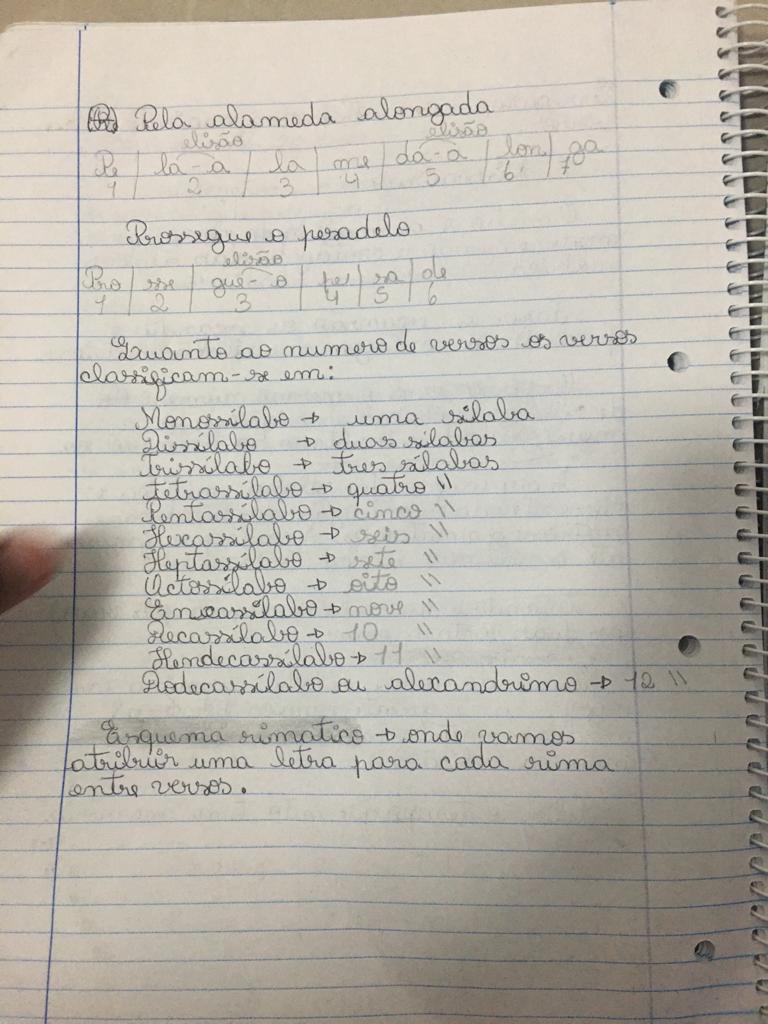 Pela alameda alongada
elisão elisão
Pe | la-a | la | me | da-a | lon | ga
1 2 3 4 5 6 7
Prossegue o pesadelo
elisão
Pro | sse | gue-o | pe | sa | de
1 2 3 4 5 6
Quanto ao numero de versos os versos
classificam-se em:
Monossílabo → uma sílaba
Dissílabo → duas sílabas
trissílabo → tres sílabas
tetrassílabo → quatro "
Pentassílabo → cinco "
Hexassílabo → seis "
Heptassílabo → sete "
Octossílabo → oito "
Eneassílabo → nove "
Decassílabo → 10 "
Hendecassílabo → 11 "
Dodecassílabo ou alexandrimo → 12 "
Esquema rimatico → onde vamos
atribuir uma letra para cada rima
entre versos.